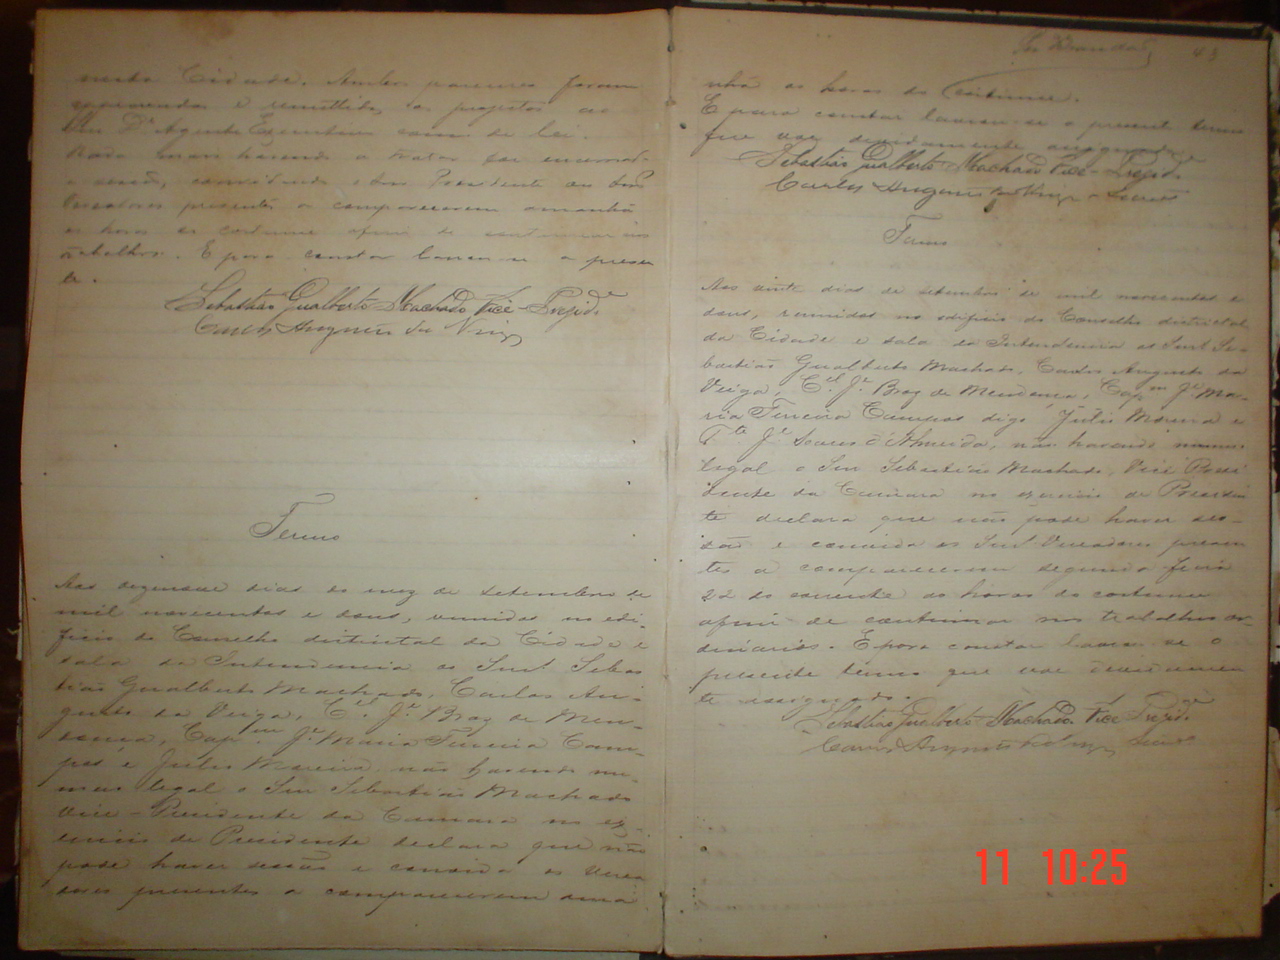 nesta Cidade. Ambos pareceres foram
approvados e remettidos os projectos ao
Snr Dr Agente Executivo como de lei.
Nada mais havendo a tratar foi encerrada
a sessão, convidando o Snr Presidente aos Snrs
Vereadores presentes a comparecerem amanhã
as horas do costume afim de continuar nos
trabalhos. E para constar lavrou-se a presen
te.
Sebastião Gualberto Machado Vice-Presid.e
Carlos Augusto da Veiga
Termo
Aos dezenove dias do mez de Setembro de
mil novecentos e dous, reunidos no edi-
ficio do Conselho districtal da Cidade e
sala da Intendencia os Snrs Sebas
tião Gualberto Machado, Carlos Au-
gusto da Veiga, Cel. Je. Braz de Men-
donça, Capm. Je. Maria Ferreira Cam-
pos e Julio Moreira, não havendo nu-
mero legal o Snr Sebastião Machado
Vice-Presidente da Camara no ex-
ercicio de Presidente declara que não
pode haver sessão e convida os Verea
dores presentes a comparecerem ama
43
nhã as horas do costume.
E para constar lavrou-se o presente termo
que vae devidamente assignado.
Sebastião Gualberto Machado Vice-Presid.e
Carlos Augusto da Veiga
Termo
Aos vinte dias de setembro de mil novecentos e
dous, reunidos no edificio do Conselho districtal
da Cidade e sala da Intendencia os Snrs Se-
bastião Gualberto Machado, Carlos Augusto da
Veiga, Cel. Je. Braz de Mendonça, Capm Je. Ma-
ria Ferreira Campos digo Julio Moreira e
Tte Je. Soares d'Almeida, não havendo numero
legal o Snr Sebastião Machado, Vice Presi
dente da Camara no exercicio de Presiden
te declara que não pode haver ses-
são e convida os Snrs Vereadores presen
tes a comparecerem segunda feira
22 do corrente as horas do costume
afim de continuar nos trabalhos or-
dinarios. E para constar lavrou-se o
presente termo que vae devidamen
te assignado.
Sebastião Gualberto Machado Vice Presid.e
Carlos Augusto da Veiga
11 10:25